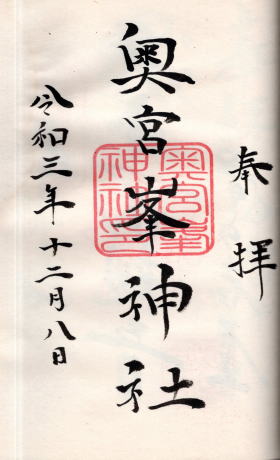 奉拝
奥宮峯神社
奥宮峯神社印
令和三年十二月八日